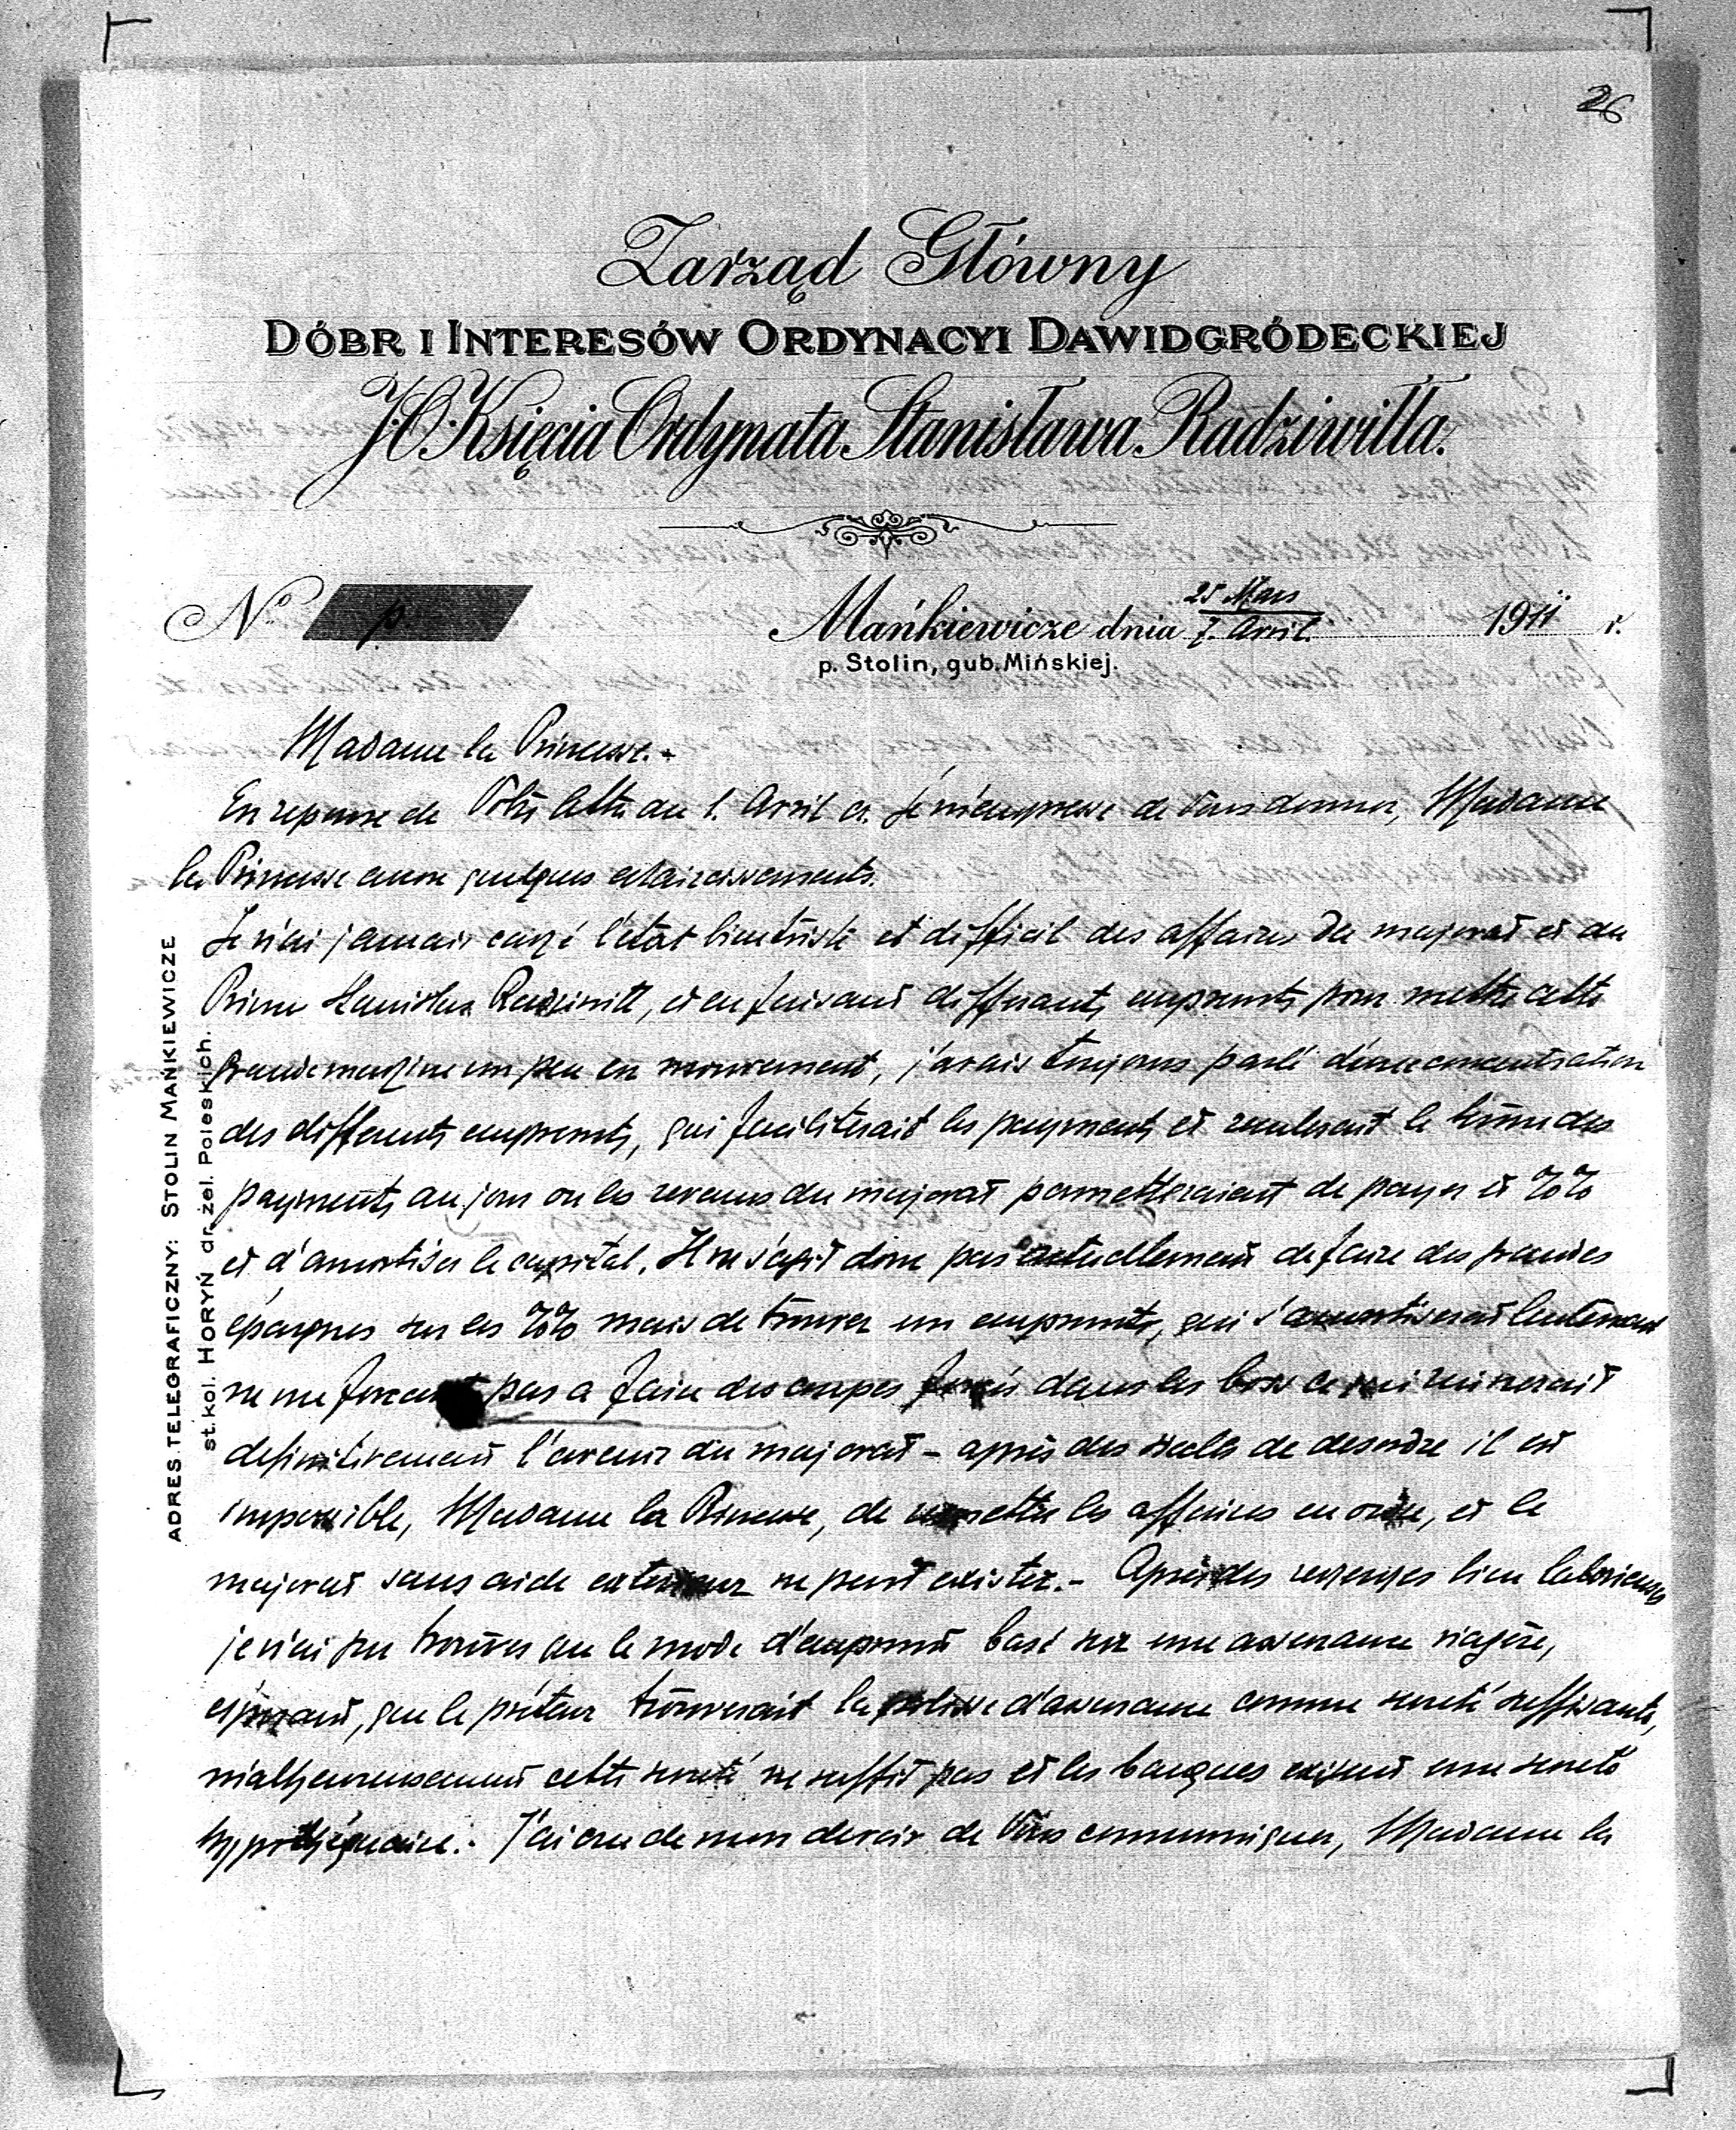 26
Zarząd Główny
DÓBR I INTERESÓW ORDYNACYI DAWIDGRÓDECKIEJ
J.O. Księcia Ordynata Stanisława Radziwiłła.
No p.
Mańkiewicze dnia 25 Mars / 7. Avril. 1911 r.
p. Stolin, gub. Mińskiej.
ADRES TELEGRAFICZNY: STOLIN MAŃKIEWICZE
st. kol. HORYŃ dr. żel. Poleskich.
Madame la Princesse. -
En reponse de Votre lettre du 1. Avril cr. je m'empresse de Vous donner, Madame
la Princesse encore quelques eclaircissements.
Je n'ai jamais caché l'état bien triste et difficil des affaires du majorat et du
Prince Stanislas Radziwill, et en faisant differants emprunts pour mettre cette
grande machine un peu en mouvement, j'avais toujours parlé d'une concentration
des differents emprunts, qui faciliterait les payments et reculerait le terme des
payments au jour ou les revenus du majorat permetteraient de payer et %%
et d'amortiser le capital. Il ne s'agit donc pas actuellement de faire des grandes
épargnes sur les %% mais de trouver un emprunt, qui s'amortiserait lentement
ne me forcant pas a faire des coupes forcés dans les bois ce qui ruinerait
definitivement l'avenir du majorat - après des siecles de desordre il est
impossible, Madame la Princesse, de remettre les affaires en ordre, et le
majorat sans aide exterieur ne peut exister. - Après des recherches bien laborieuses
je n'ai pu trouver que le mode d'emprunt basé sur une assurance viagère,
espérant, que le prêteur trouverait la polisse d'assurance comme sureté suffisante,
malheureusement cette sureté ne suffit pas et les banques exigent une sureté
hypothéquaire. - J'ai cru de mon devoir de Vous communiquer, Madame la